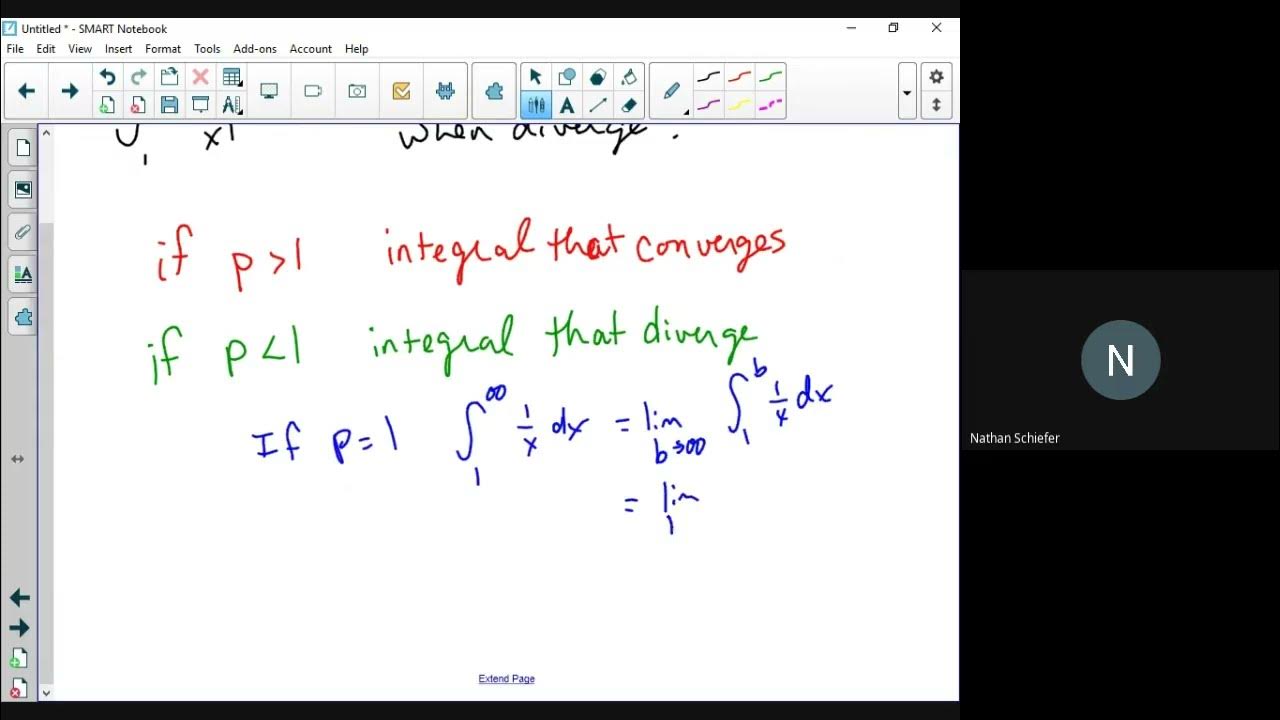 Untitled * - SMART Notebook
File Edit View Insert Format Tools Add-ons Account Help
1 x1 when diverge?
if p > 1 integral that converges
if p < 1 integral that diverge
If p = 1 ∫₁^∞ 1/x dx = lim b→∞ ∫₁^b 1/x dx
= lim
1
Extend Page
N
Nathan Schiefer